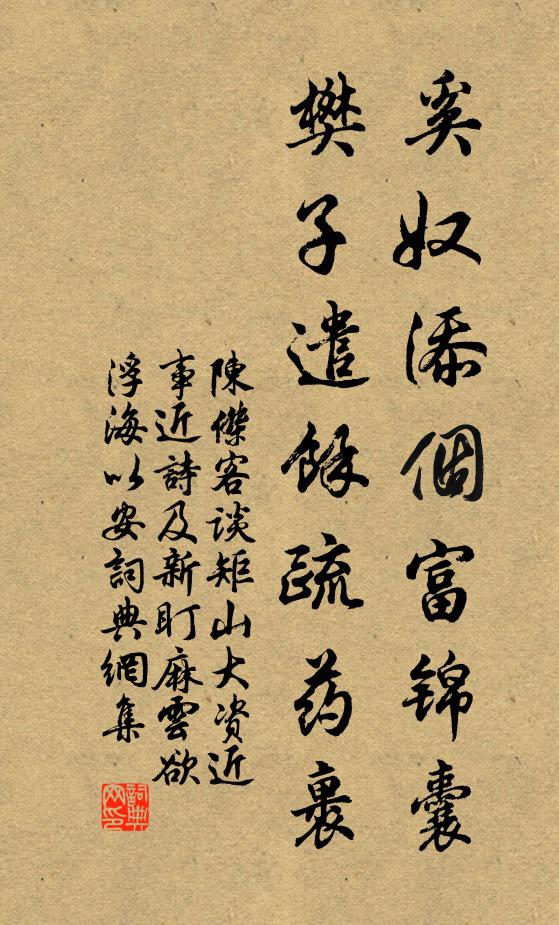 奚奴添個富錦囊
樊子遣餘疏药裹
陳傑客談矩山大资近
事近詩及新盯麻雲欲
浮海以安詞典網集
詞典网印